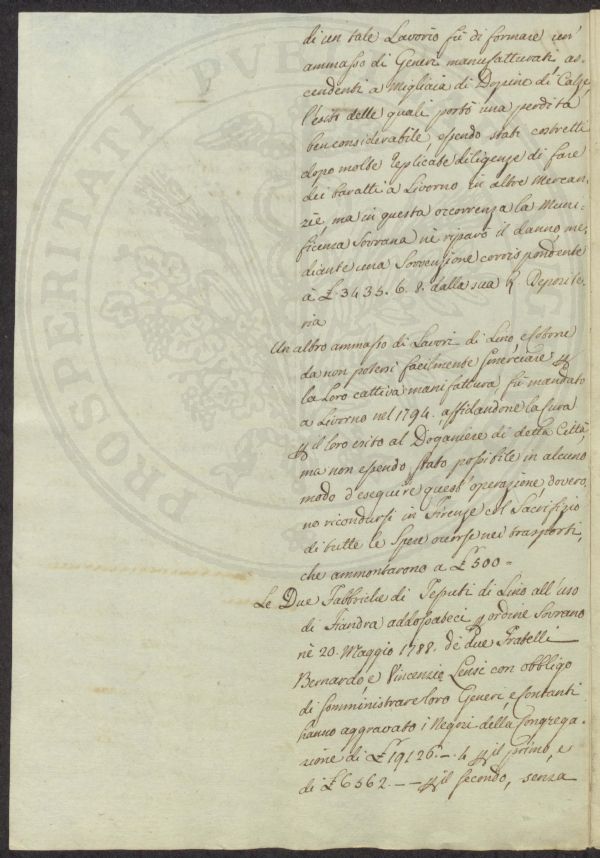 di un tale Lavorio fù di formare un'
ammasso di Generi manufatturati as-
cendenti a Migliaia di Dozine di Calze,
l'esito delle quali portò una perdita
ben considerabile, essendo stati costretti
dopo molte replicate diligenze di fare
dei baratti a Livorno in altre Mercan-
zie, ma in questa occorrenza la Muni-
ficenza Sovrana nè riparò il danno me-
diante una Sovvenzione corrispondente
à £ 3435. 6. 8. dalla sua R Deposite-
ria
Un altro ammasso di Lavori di Lino e Cotone
da non potersi facilmente smerciare
la Loro cattiva manifattura fù mandato
a Livorno nel 1794. affidandone la Cura
il loro esito al Doganiere di detta Città,
ma non essendo stato possibile in alcuno
modo d'eseguire quest'operazione, dovero-
no ricondursi in Firenze col Sacrifizio
di tutte le Spese occorse nei trasporti,
che ammontarono a £ 500 =
Le Due Fabbriche di Tessuti di Lino all'uso
di Fiandra addossateci ordine Sovrano
nè 20. Maggio 1788. de due Fratelli
Bernardo, e Vincenzio Lensi con obbligo
di somministrare loro Generi, e Contanti
hanno aggravato i Negozi della Congrega-
zione di £ 19126. -. 4 il primo, e
di £ 6562. - - il secondo, senza
PROSPERITATI PU